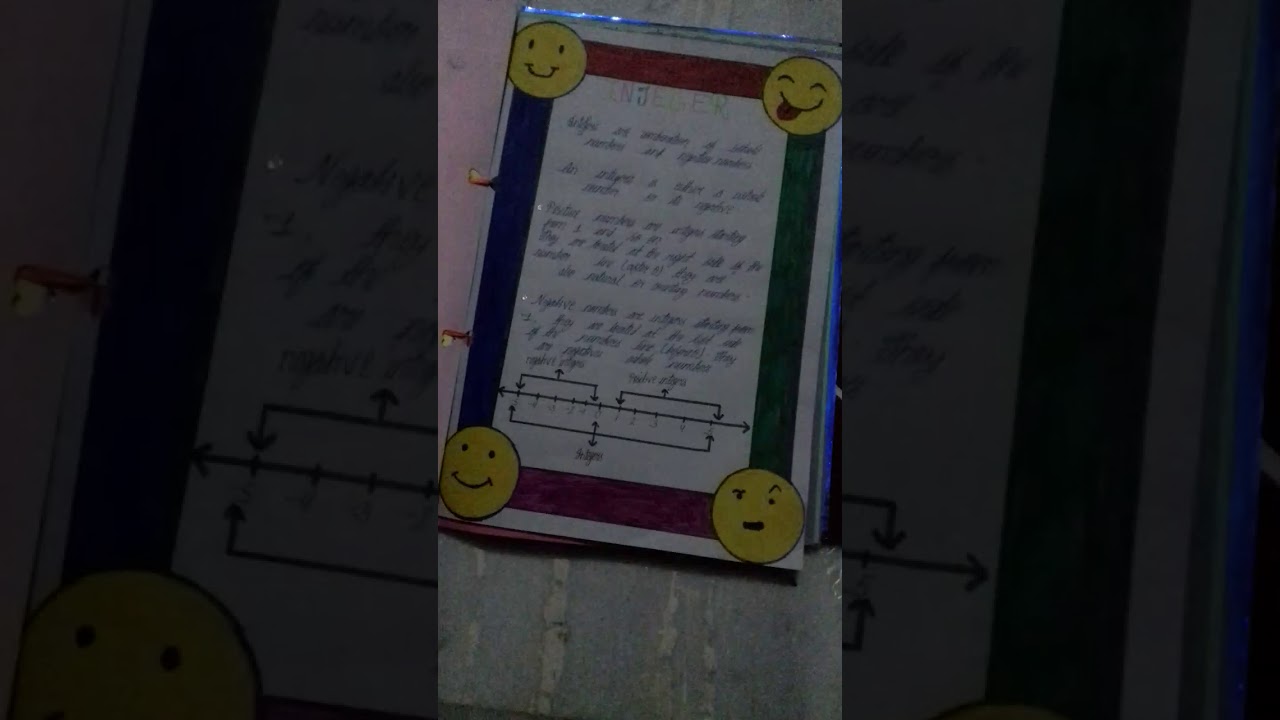 INTEGER
Integers are combination of whole
numbers and negative numbers
An integers is either a whole
number or its negative
Positive numbers are integers starting
from 1 and so on.
They are located at the right side of the
number line (after 0) they are
also natural or counting numbers.
Negative numbers are integers starting from
-1. they are located at the left side
of the number line (before 0) they
are negative whole numbers
negative integers Positive integers
-5 -4 -3 -2 -1 0 1 2 3 4 5
Integers